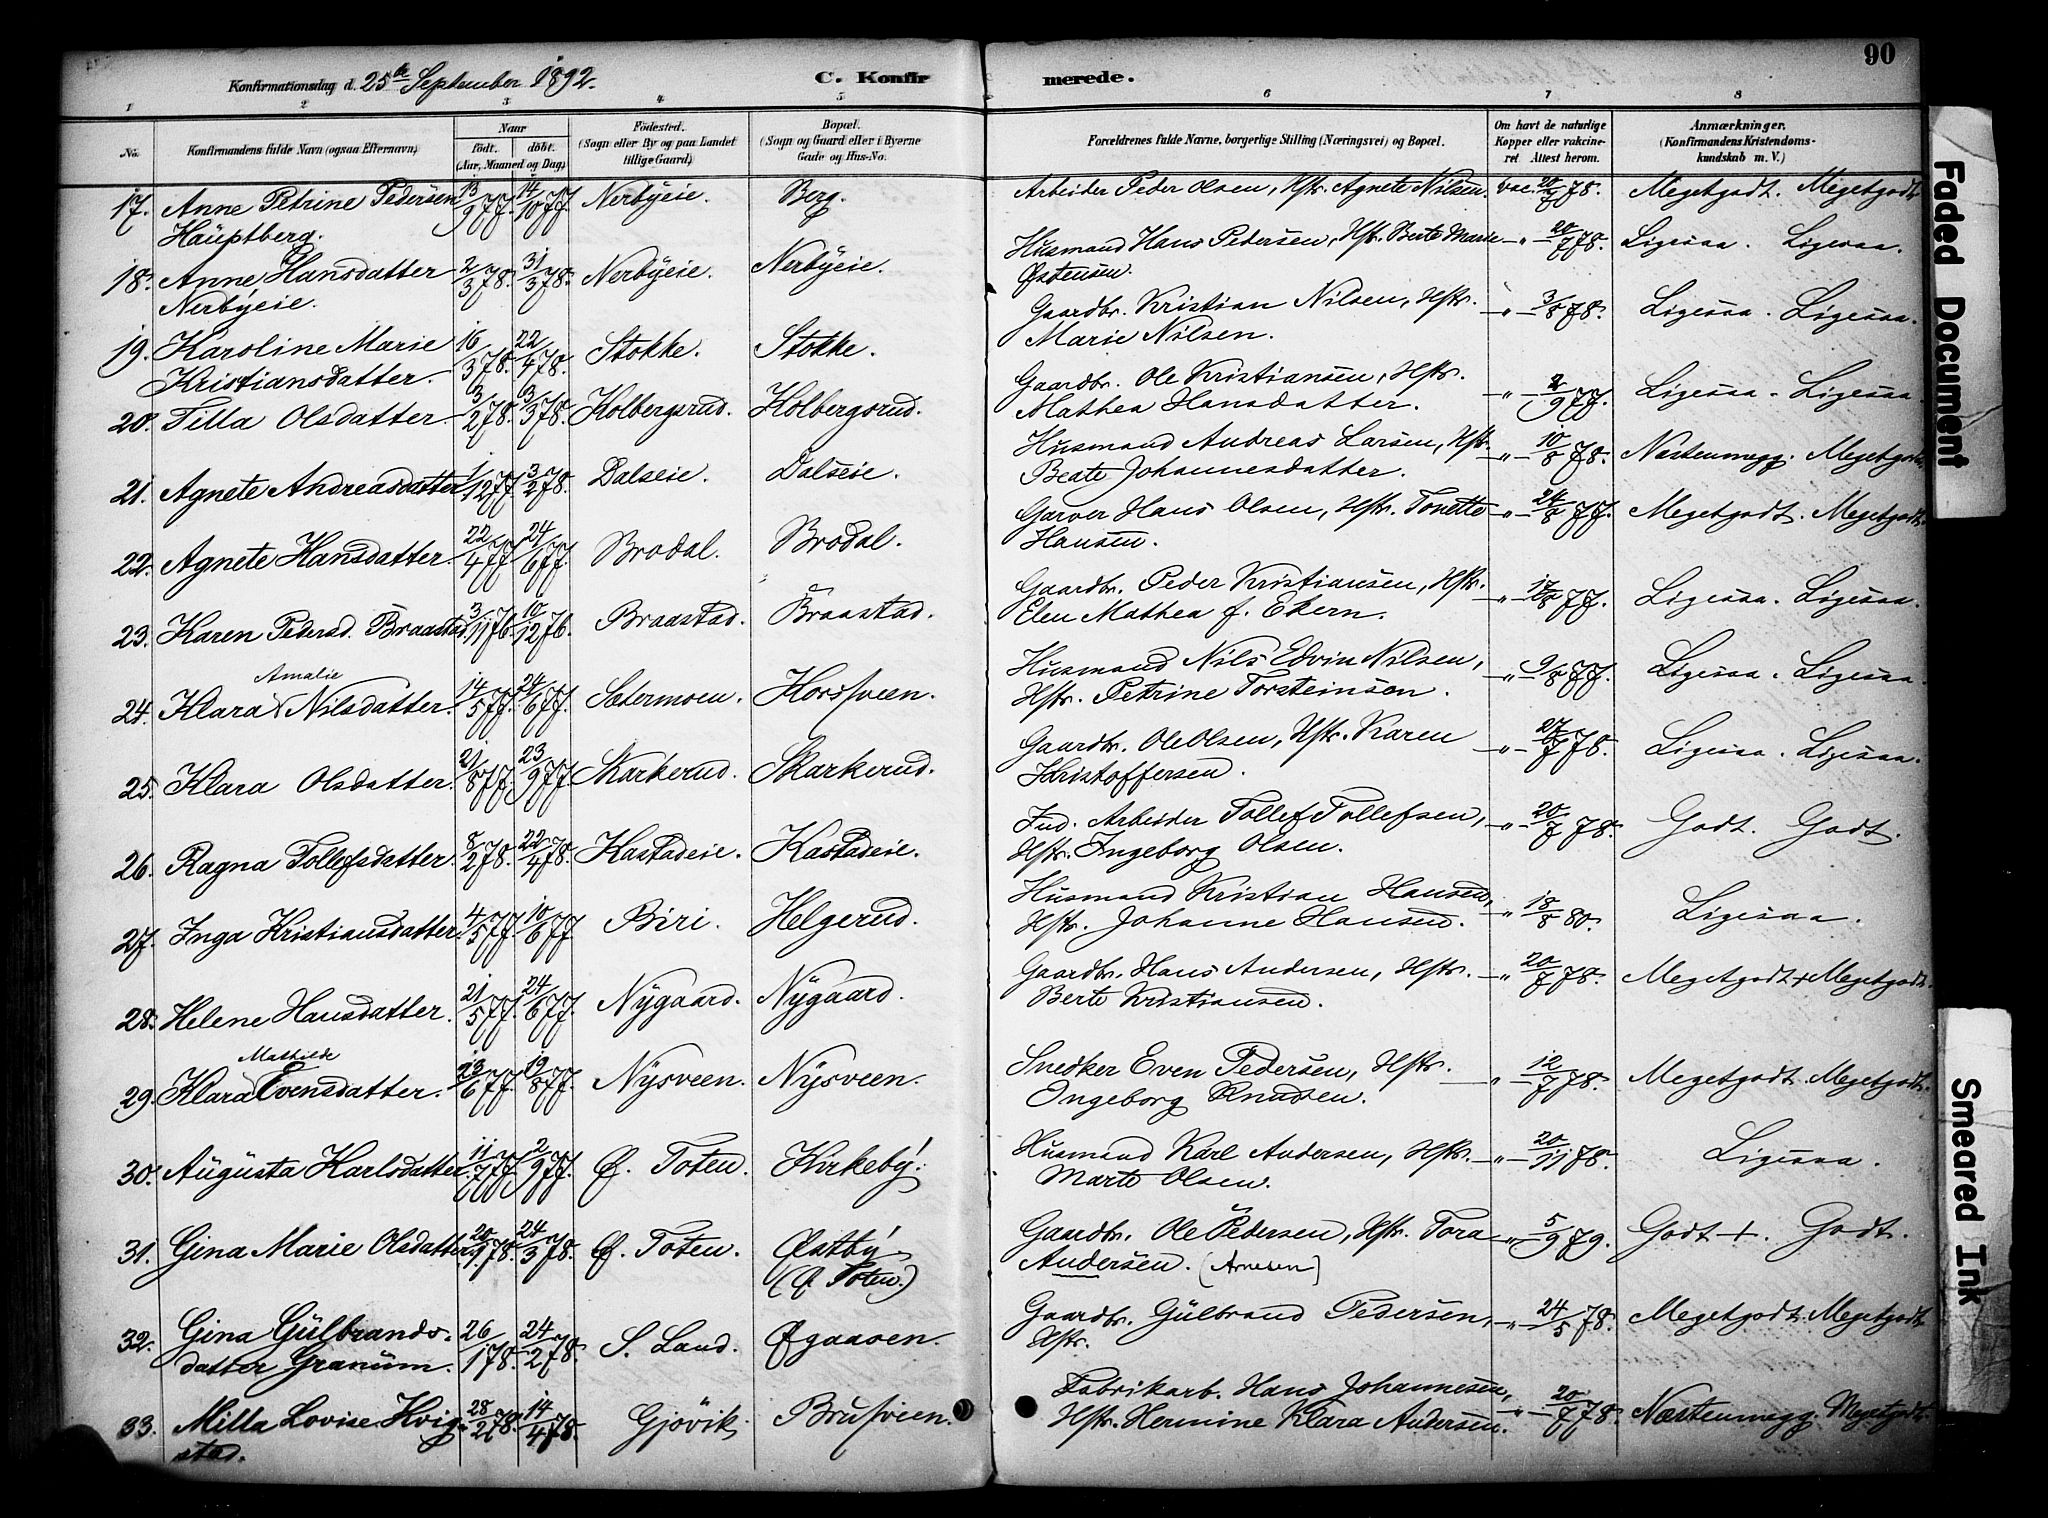 90
Konfirmationsdag d. 25de September 1892. C. Konfirmerede.
1 2 3 4 5 6 7 8
No. Konfirmandens fulde Navn (ogsaa Efternavn). Naar født. døbt. (Aar, Maaned og Dag) Fødested. (Sogn eller By og paa Landet tillige Gaard.) Bopæl. (Sogn og Gaard eller i Byerne Gade og Hus-No. Forældrenes fulde Navne, borgerlige Stilling (Næringsvei) og Bopæl. Om havt de naturlige Kopper eller vakcineret Attest herom. Anmærkninger. (Konfirmandens Kristendomskundskab m. V.)
17. Anne Petrine Pedersen Hauptberg. 13/9 77. 14/10 77. Nerbyeie. Berg. Arbeider Peder Olsen, Hstr. Agnete Nilsen. vac. 20/7 78. Megetgodt. Megetgodt
18. Anne Hansdatter Nerbyeie. 2/3 78. 31/3 78. Nerbyeie. Nerbyeie. Husmand Hans Pedersen, Hstr. Berte Marie Østensen. —"— 20/7 78. Ligesaa. Ligesaa.
19. Karoline Marie Kristiansdatter. 16/3 78. 22/4 78. Stokke. Stokke. Gaardbr. Kristian Nilsen, Hstr. Marie Nilsen. —"— 3/8 78. Ligesaa. Ligesaa.
20. Tilla Olsdatter. 3/2 78. 3/3 78. Kolbergsrud. Kolbergsrud. Gaardbr. Ole Kristiansen, Hstr. Mathea Hansdatter. —"— 2/9 77. Ligesaa. Ligesaa.
21. Agnete Andreasdatter 1/12 77. 3/2 78. Dalseie. Dalseie. Husmand Andreas Larsen, Hstr. Beate Johannesdatter. —"— 10/8 78. Næstenmegg. Megetgodt.
22. Agnete Hansdatter. 22/4 77. 24/6 77. Brodal. Brodal. Garver Hans Olsen, Hstr. Tonette Hansen. —"— 24/8 77. Megetgodt. Megetgodt.
23. Karen Pedersd. Braastad. 3/11 76. 10/12 76. Braastad. Braastad. Gaardbr. Peder Kristiansen, Hstr. Elen Mathea f. Ekern. —"— 17/8 77. Ligesaa. Ligesaa.
24. Klara Amalie Nilsdatter. 14/5 77. 24/6 77. Sætermoen. Korsfveen. Husmand Nils Edvin Nilsen, Hstr. Petrine Torsteinson. —"— 9/8 77. Ligesaa. Ligesaa.
25. Klara Olsdatter. 21/8 77. 23/9 77. Skarkerud. Skarkerud. Gaardbr. Ole Olsen, Hstr. Karen Kristoffersen. —"— 27/7 78. Ligesaa. Ligesaa.
26. Ragna Tollefsdatter. 8/2 78. 22/4 78. Kastadeie. Kastadeie. Ind. Arbeider Tollef Tollefsen, Hstr. Ingeborg Olsen. —"— 20/7 78. Godt. Godt.
27. Inga Kristiansdatter. 4/5 77. 10/6 77. Biri. Helgerud. Husmand Kristian Hansen, Hstr. Johanne Hansen. —"— 18/8 80. Ligesaa.
28. Helene Hansdatter. 21/5 77. 24/6 77. Nygaard. Nygaard. Gaardbr. Hans Andersen, Hstr. Berte Kristiansen. —"— 20/7 78. Megetgodt + Megetgodt.
29. Klara Mathilde Evensdatter. 23/6 77. 19/8 77. Nysveen. Nysveen. Snedker Even Pedersen, Hstr. Ingeborg Knudsen. —"— 12/7 78. Megetgodt. Megetgodt.
30. Augusta Karlsdatter. 11/7 77. 2/9 77. Ø. Toten. Kirkeby. Husmand Karl Andersen, Hstr. Marte Olsen. —"— 20/11 78. Ligesaa.
31. Gina Marie Olsdatter. 20/1 78. 24/3 78. Ø. Toten. Østby (Ø. Toten.) Gaardbr. Ole Pedersen, Hstr. Tora Andersen. (Arnesen) —"— 5/9 79. Godt +. Godt.
32. Gina Gulbrandsdatter Granum. 26/1 78. 24/2 78. S. Land. Øgaasen. Gaardbr. Gulbrand Pedersen, Hstr. —"— 24/5 78. Megetgodt. Megetgodt
33. Milla Lovise Kvigstad. 28/2 78. 14/4 78. Gjøvik. Brusveen. Fabrikarb. Hans Johannesen, Hstr. Hermine Klara Andersen. —"— 20/7 78. Næstenmegg. Megetgodt.
Faded Document
Smeared Ink